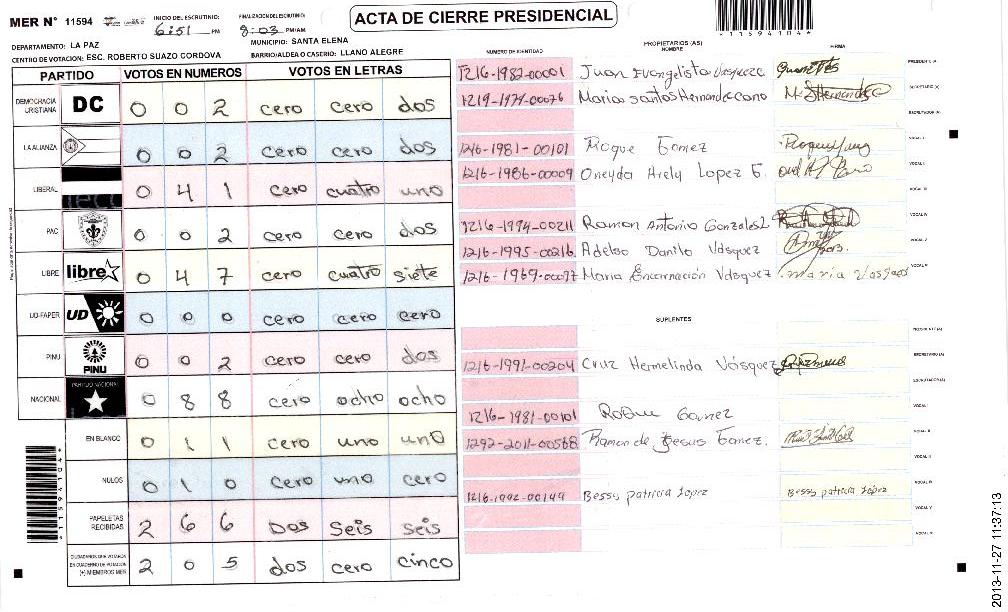 MER N° 11594
INICIO DEL ESCRUTINIO:
6:51 PM
FINALIZACION DEL ESCRUTINIO:
8:03 PM/AM
ACTA DE CIERRE PRESIDENCIAL
*11594104*
DEPARTAMENTO: LA PAZ
MUNICIPIO: SANTA ELENA
CENTRO DE VOTACION: ESC. ROBERTO SUAZO CORDOVA
BARRIO/ALDEA O CASERIO: LLANO ALEGRE
PARTIDO VOTOS EN NUMEROS VOTOS EN LETRAS
DEMOCRACIA CRISTIANA DC 0 0 2 cero cero dos
LA ALIANZA 0 0 2 cero cero dos
LIBERAL 0 4 1 cero cuatro uno
PAC 0 0 2 cero cero dos
LIBRE libre 0 4 7 cero cuatro siete
UD-FAPER UD 0 0 0 cero cero cero
PINU PINU 0 0 2 cero cero dos
NACIONAL PARTIDO NACIONAL 0 8 8 cero ocho ocho
EN BLANCO 0 1 1 cero uno uno
NULOS 0 1 0 cero uno cero
PAPELETAS RECIBIDAS 2 6 6 Dos seis seis
CIUDADANOS QUE VOTARON EN CUADERNO DE VOTACION (+) MIEMBROS MER 2 0 5 dos cero cinco
*11594104*
PROPIETARIOS (AS)
NUMERO DE IDENTIDAD NOMBRE FIRMA
1216-1982-00001 Juan Evangelista Vasquez PRESIDENTE (A)
1219-1979-00076 Marios santos Hernandez cano M. S Hernandez C SECRETARIO (A)
ESCRUTADOR (A)
1216-1981-00101 Roque Gomez VOCAL I
1216-1986-00009 Oneyda Arely Lopez G. VOCAL II
VOCAL III
1216-1994-00211 Ramon Antonio Gonzales L VOCAL IV
1216-1995-00216 Adelso Danilo Vásquez VOCAL V
1216-1969-00077 Maria Encarnación Vásquez maria Vasquez
SUPLENTES
PRESIDENTE (A)
1216-1991-00204 Cruz Hermelinda Vásquez SECRETARIO (A)
ESCRUTADOR (A)
1216-1981-00101 Gomez VOCAL I
1292-2011-00568 Ramon de Jesus Gomez. VOCAL II
VOCAL III
1216-1992-00149 Bessy patricia Lopez Bessy patricia Lopez VOCAL IV
VOCAL V
2013-11-27 11:37:13